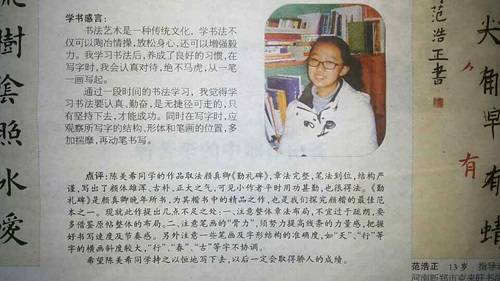 樹
陰
照
水
愛
学书感言：
书法艺术是一种传统文化，学书法不
仅可以陶冶情操，放松身心，还可以增强毅
力。我学习书法后，养成了良好的习惯，在
写字时，我会认真对待，绝不马虎，从一笔
一画写起。
通过一段时间的书法学习，我觉得学
习书法要认真、勤奋，是无捷径可走的，只
有坚持下去，才能成功。同时在写字时，应
观察所写字的结构、形体和笔画的位置，多
加揣摩，再动笔书写。
点评：陈美希同学的作品取法颜真卿《勤礼碑》，章法完整，笔法到位，结构严
谨，写出了颜体雄浑、古朴、正大之气，可见小作者平时用功甚勤，也很得法。《勤
礼碑》是颜真卿晚年所书，为其楷书中的精品之作，也是我们探究颜楷的最佳范
本之一。现就此作提出几点不足之处：一、注意整体章法布局，不宜过于疏朗，要
多借鉴原帖整体的布局。二、注意笔画的“骨力”，须努力提高线条的力量感，把握
好书写速度及节奏感。另外注意一些笔画及字形结构的准确度，如“天”、“行”等
字的横画斜度较大，“行”、“春”、“古”等字不协调。
希望陈美希同学持之以恒地写下去，以后一定会取得骄人的成绩。
范浩正書
尖
角
早
有
蜻
有
范浩正 13岁 指导